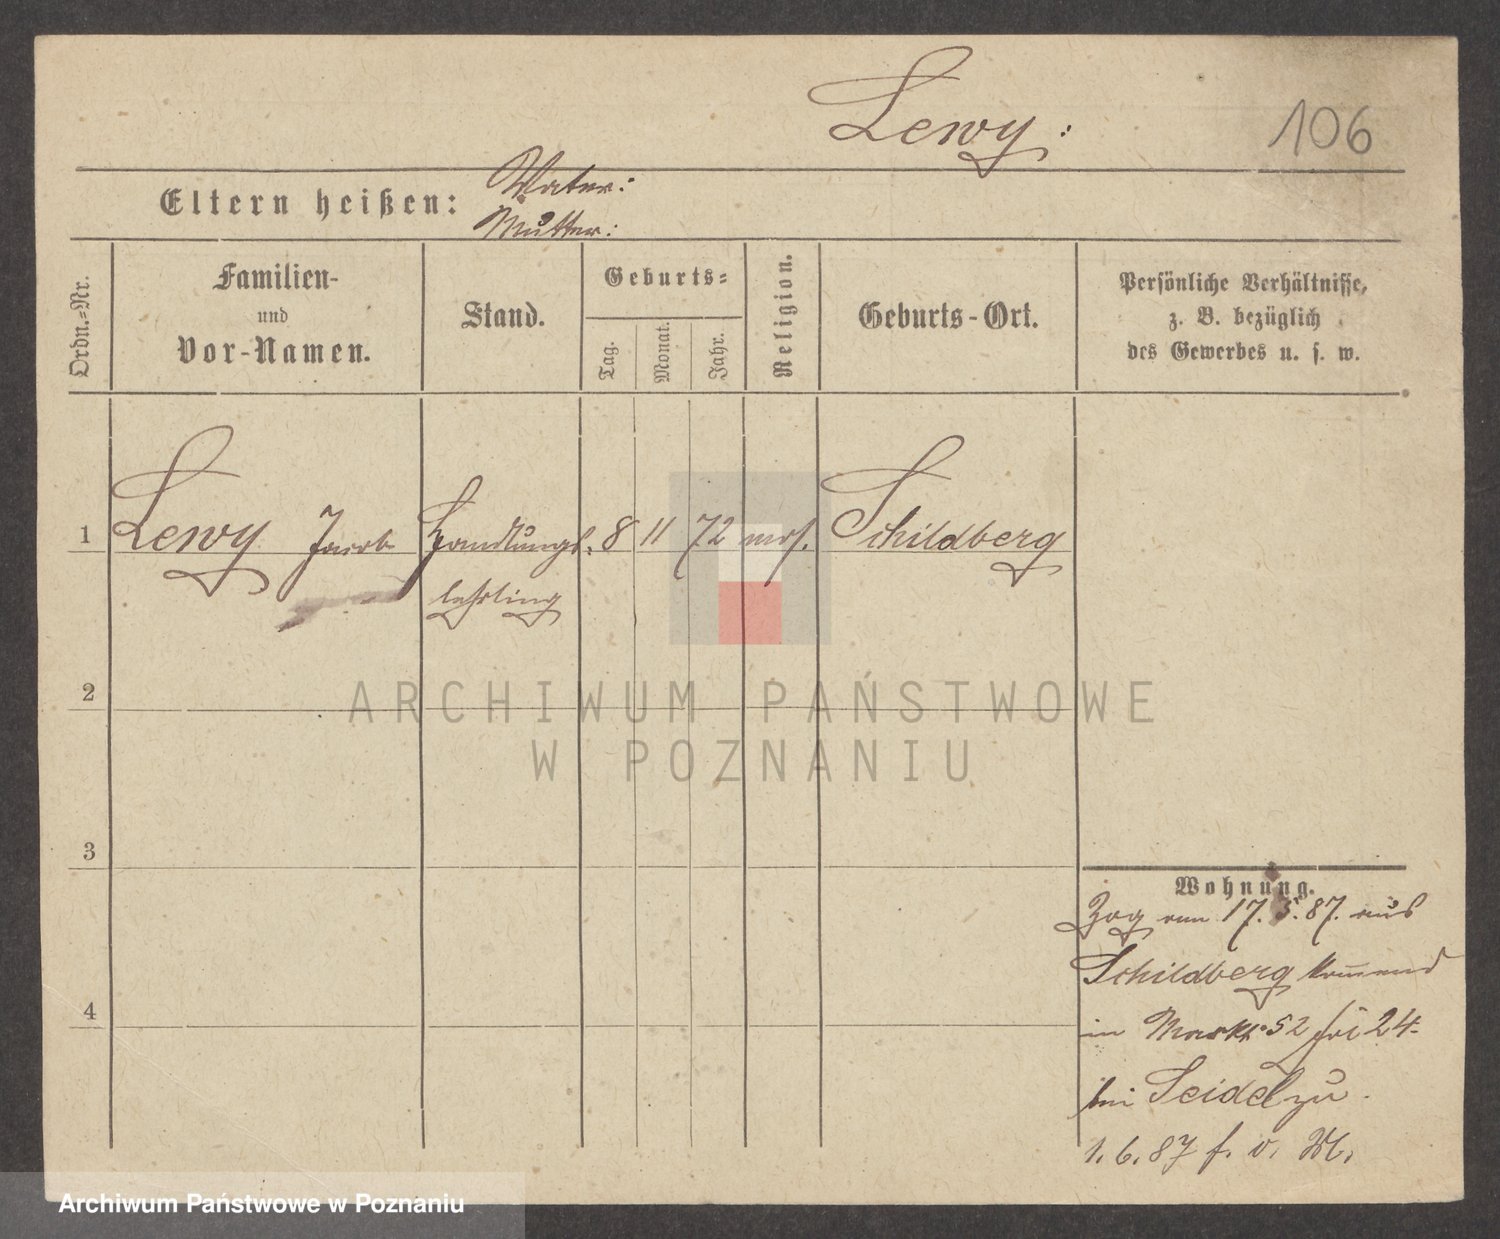 Lewy:
106
Eltern heißen:
Vater:
Mutter:
Ordn.=Nr.
Familien-
und
Vor-Namen.
Stand.
Geburts=
Tag.
Monat.
Jahr.
Religion.
Geburts-Ort.
Persönliche Verhältnisse,
z. B. bezüglich
des Gewerbes u. s. w.
1 Lewy Jacob Handlungs- 8 11 72 mos. Schildberg
lehrling
2
ARCHIWUM PAŃSTWOWE
W POZNANIU
3
4
Wohnung.
Zog am 17. 5. 87. aus
Schildberg komend
in Markt 52 24.
bei Seidel zu.
1. 6. 87 f. v. W.
Archiwum Państwowe w Poznaniu